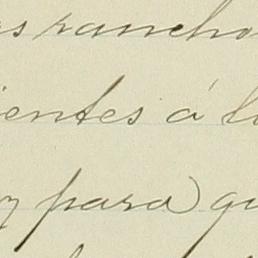 s rancho
ientes á l
y para qu